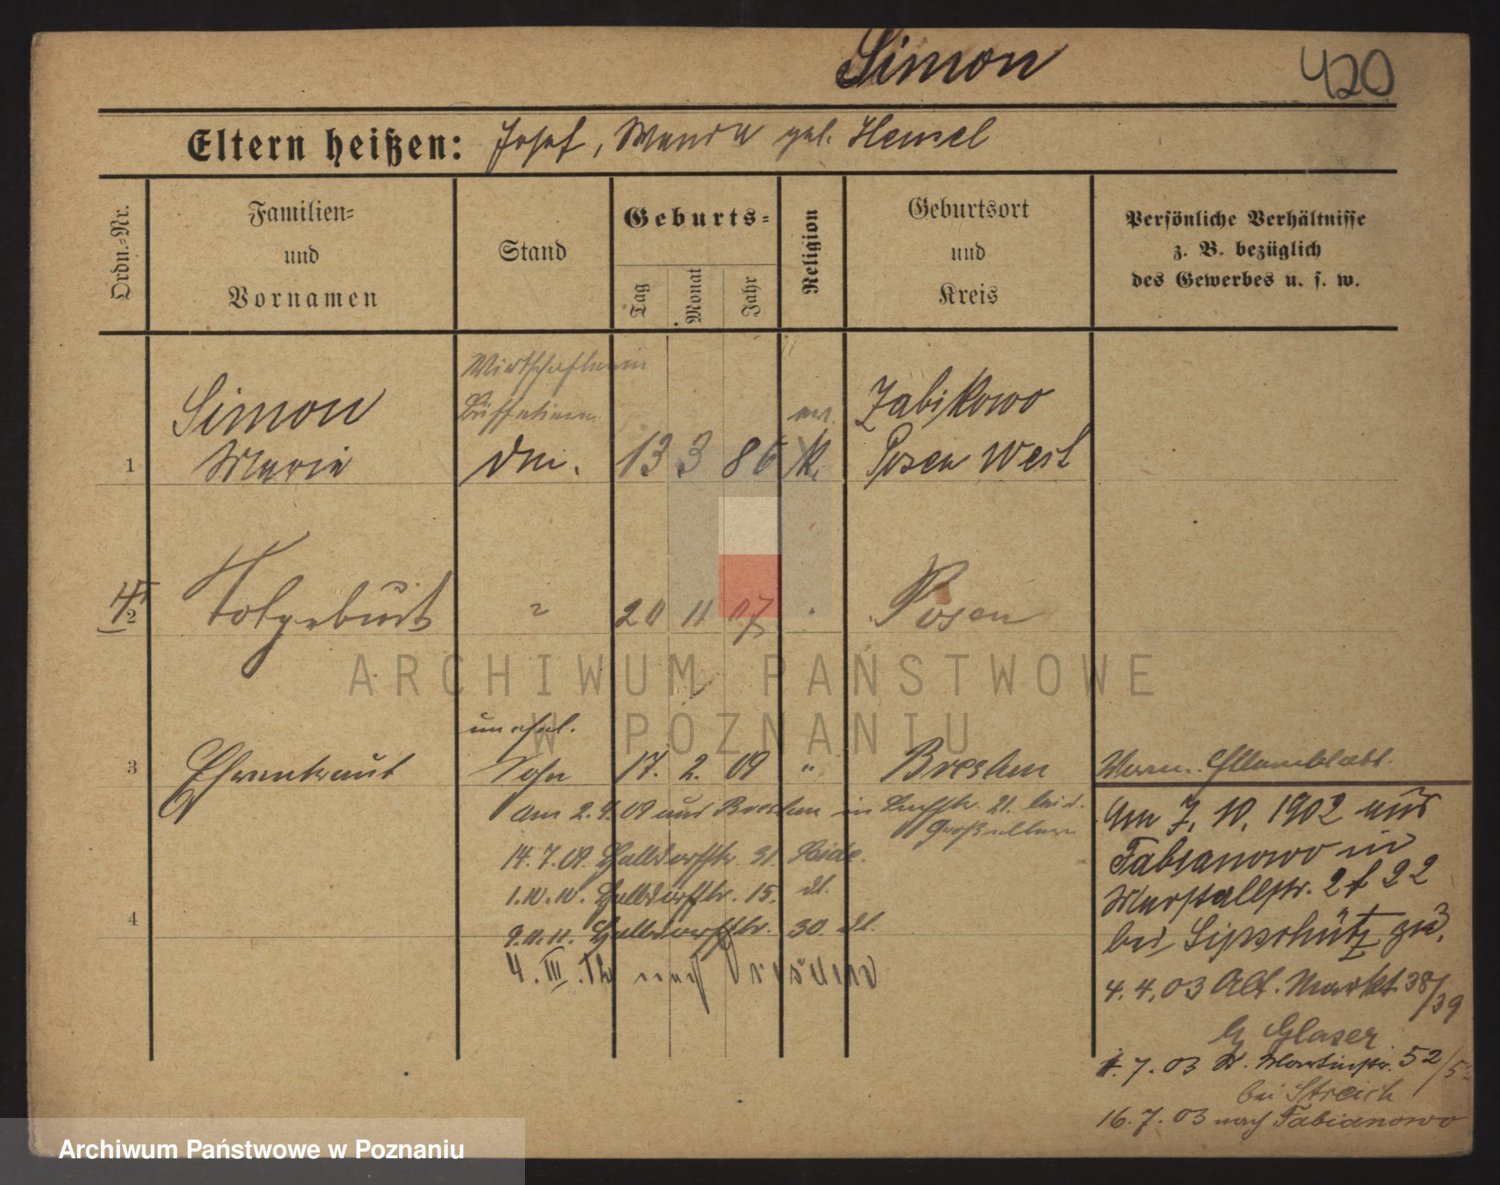 Simon
420
Eltern heißen: Josef, Wanda geb. Hensel
Ordn.-Nr.
Familien-
und
Vornamen
Stand
Geburts-
Tag
Monat
Jahr
Religion
Geburtsort
und
Kreis
Persönliche Verhältnisse
z. B. bezüglich
des Gewerbes u. s. w.
Wirtschafterin
Büffetieren
ev.
Simon
Zabikowo
1 Marie
Dm. 13 3 86 k.
Posen West
2 Totgeburt
" 20 11 07
Posen
unehel.
3 Ehrentraut Sohn 17. 2. 09 " Breslau
am 2. 4. 09 aus Breslau in 21. bei d.
Großeltern
14. 7. 09. 31.
15.
4
9. 11. 11. 30
4. III. 12 nach
Am 7. 10. 1902 aus
Fabianowo in
22
bei Lipschütz zu.
4. 4. 03 Alt. Markt 38/39
Glaser
7. 03 St. Martinstr. 52/5
bei Streich
16. 7. 03 nach Fabianowo
ARCHIWUM PAŃSTWOWE
W POZNANIU
Archiwum Państwowe w Poznaniu